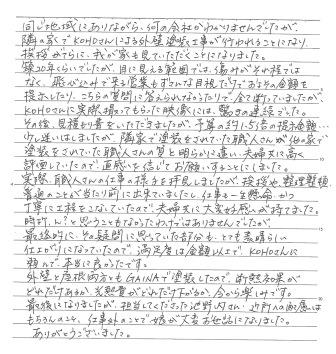 同じ地域にありながら、何の会社かわかりませんでしたが、
隣の家でKOHOさんによる外壁塗装工事が行われることになり、
挨拶がてらに、我が家も見ていただくことになりました。
築20年くらいでしたが、目に見える範囲では傷みがそれ程では
なく、飛び込みで来る営業もずさんな目視だけでおよその金額を
提示したり、こちらの質問に答えられなかったりで全て断っていましたが、
KOHOさんに実際撮ってもらった映像には、驚きの連続でした。
その後、見積り書をいただきましたが、予算の約1.5倍の提示金額…
少し迷いはしましたが、隣家で塗装をされていた職人さんが他の家で
塗装をされていた職人さんの質と明らかに違い、夫婦共に高く
評価していたので、直感を信じてお願いすることにしました。
実際、職人さんの仕事の様子を拝見しましたが、挨拶や、整理整頓
普通のことが当たり前に出来ていましたし、仕事も一生懸命かつ
丁寧に工程をこなしていたので、夫婦共に大変好感が持てました。
時折、ん？と思うこともなかったわけではありませんでしたが、
最終的に、その疑問に思っていた部分も、とても素晴らしい
仕上がりになっていたので、満足度は金額以上で、KOHOさんに
頼んで、本当に良かったです。
外壁と屋根両方ともGAINAで塗装したので、断熱効果が
どれだけあるか、光熱費がどれだけ下がるか、今から楽しみです。
最後になりましたが、担当してくださった池野内さん、近所への配慮は
もちろんのこと、仕事外のことで娘が大変お世話になりました。
ありがとうございました。